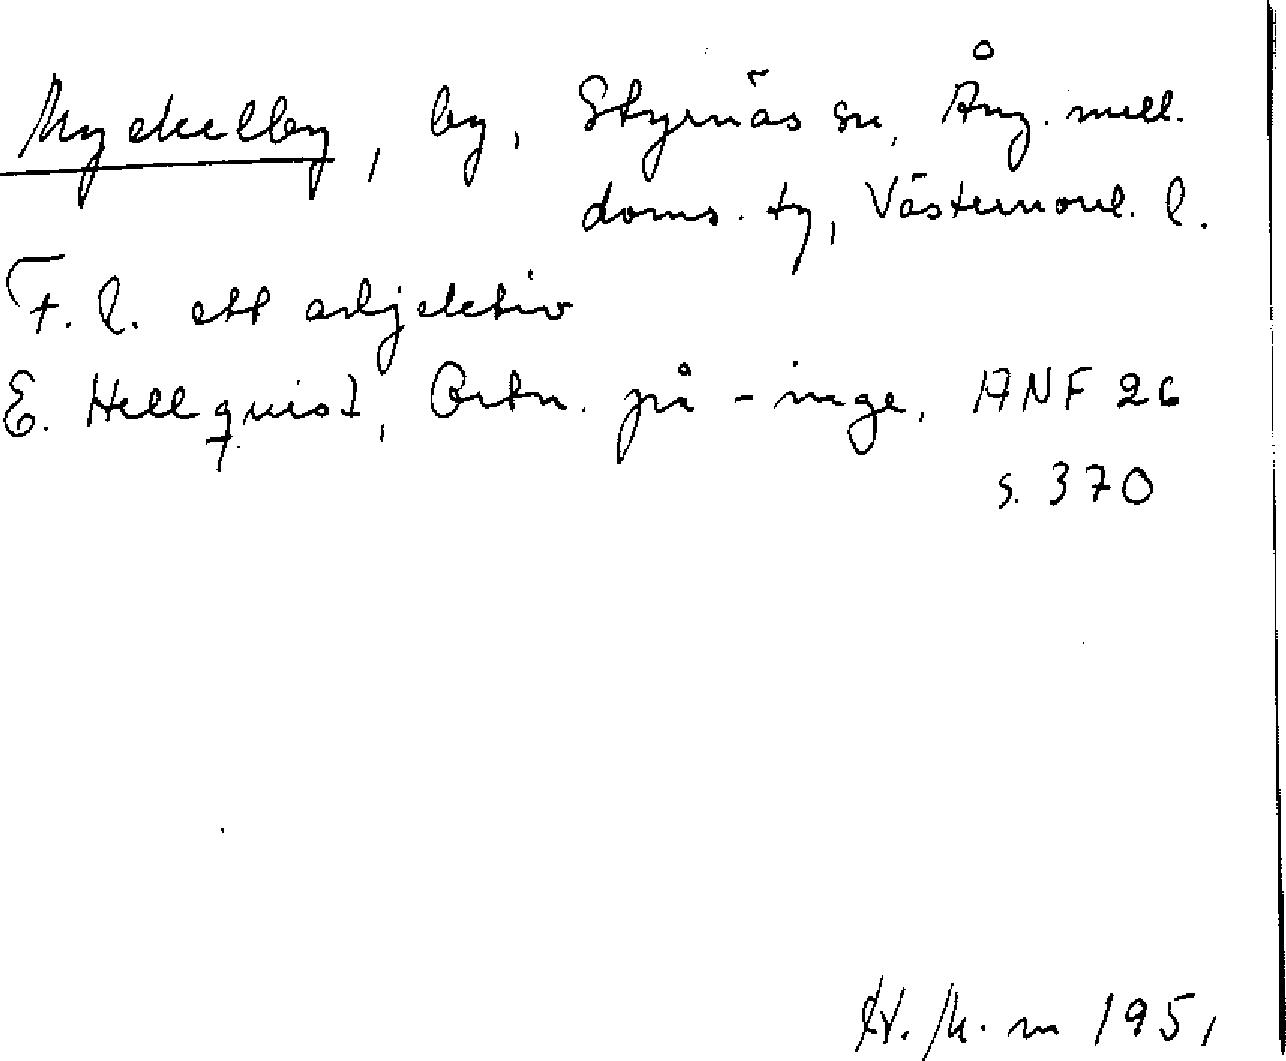 Myckelby, by, Styrnäs sn, Ång. mell.
doms. tg, Västernorrl. l.
F. l. ett adjektiv
E. Hellquist, Ortn. på -inge, ANF 26
s. 370
1951